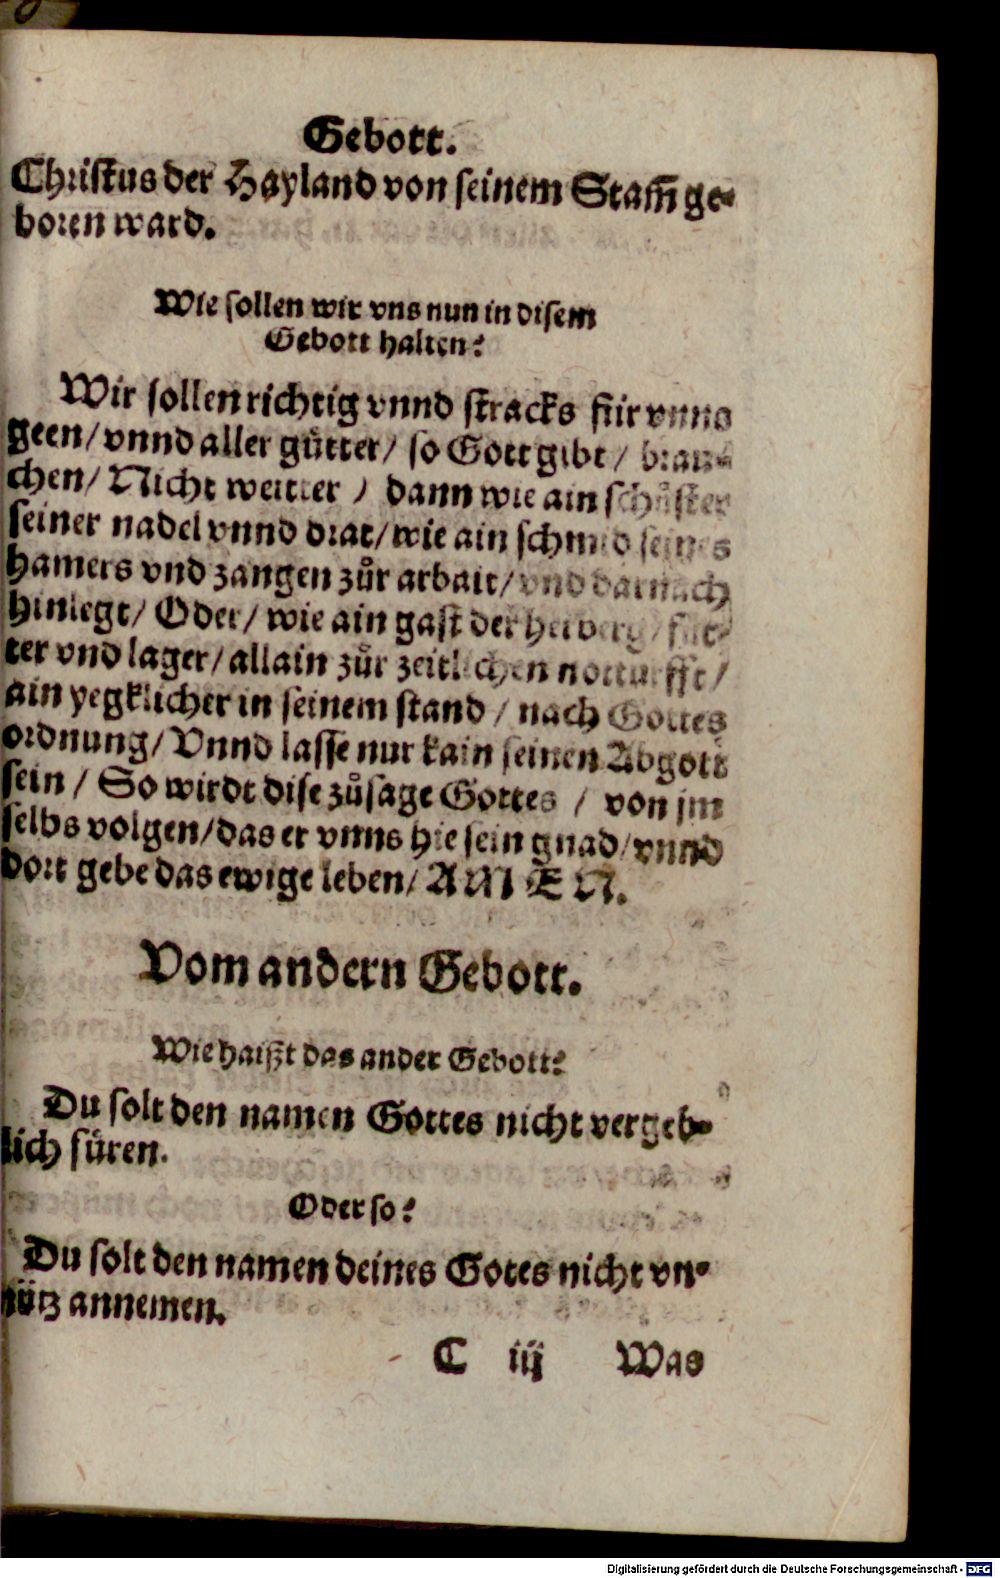 Gebott.
Christus der Hayland von seinem Stam̄ ge-
boren ward.
Wie sollen wir vns nun in disem
Gebott halten?
Wir sollen richtig vnnd stracks für vnns
geen/ vnnd aller gütter/ so Gott gibt / brau-
chen/ Nicht weitter / dann wie ain schůster
seiner nadel vnnd drat/ wie ain schmid seines
hamers vnd zangen zůr arbait/ vnd darnach
hinlegt/ Oder/ wie ain gast der herberg/ fůt-
ter vnd lager/ allain zůr zeitlichen notturfft/
ain yegklicher in seinem stand / nach Gottes
ordnung/ Vnnd lasse nur kain seinen Abgott
sein / So wirdt dise zůsage Gottes / von jm
selbs volgen/ das er vnns hie sein gnad/ vnnd
dort gebe das ewige leben/ AMEN.
Vom andern Gebott.
Wie haißt das ander Gebott?
Du solt den namen Gottes nicht vergeb-
lich füren.
Oder so?
Du solt den namen deines Gotes nicht vn-
nütz annemen.
C iij Was
Digitalisierung gefördert durch die Deutsche Forschungsgemeinschaft - DFG